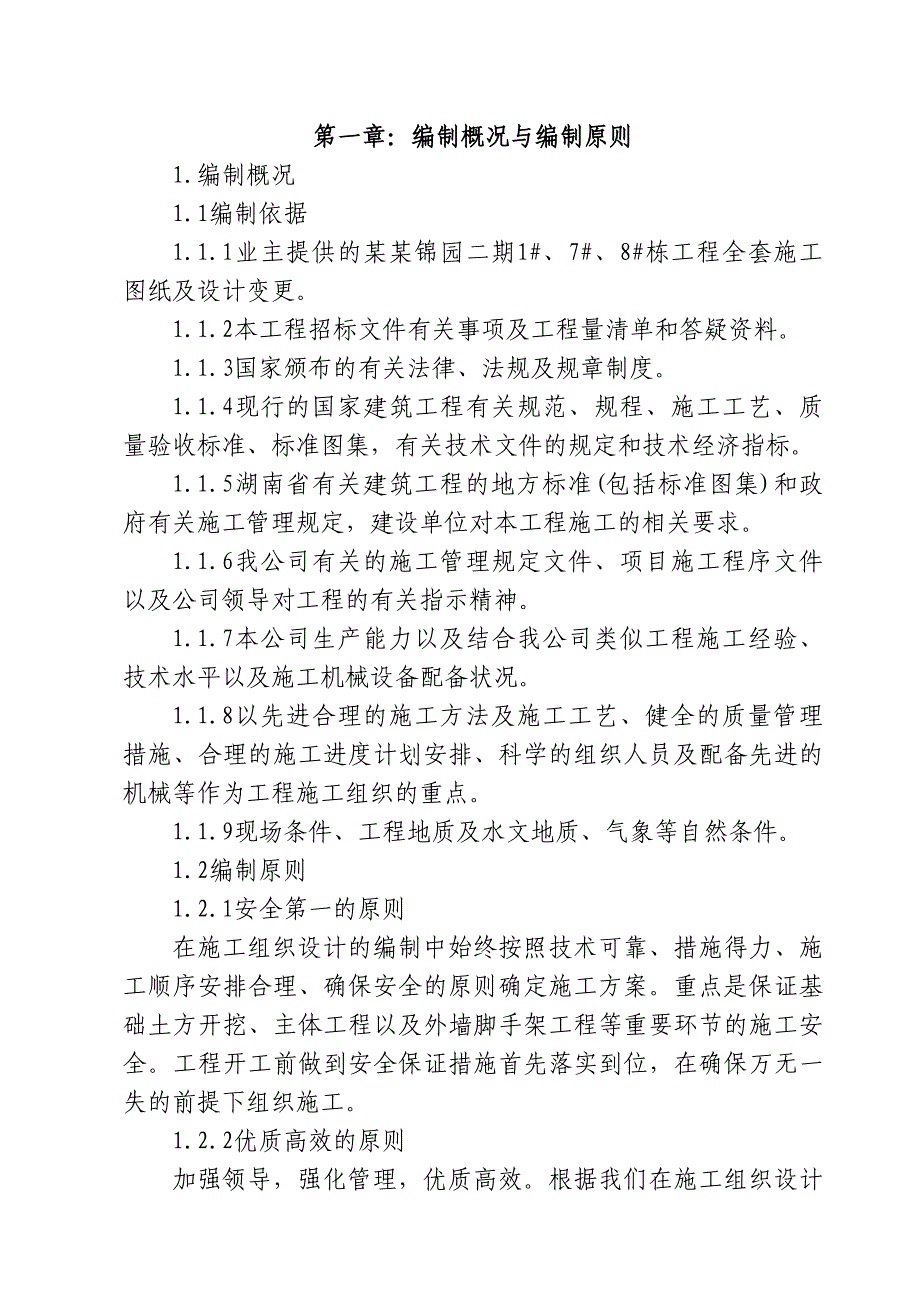 第一章：编制概况与编制原则
1.编制概况
1.1编制依据
1.1.1业主提供的某某锦园二期1#、7#、8#栋工程全套施工
图纸及设计变更。
1.1.2本工程招标文件有关事项及工程量清单和答疑资料。
1.1.3国家颁布的有关法律、法规及规章制度。
1.1.4现行的国家建筑工程有关规范、规程、施工工艺、质
量验收标准、标准图集，有关技术文件的规定和技术经济指标。
1.1.5湖南省有关建筑工程的地方标准(包括标准图集)和政
府有关施工管理规定，建设单位对本工程施工的相关要求。
1.1.6我公司有关的施工管理规定文件、项目施工程序文件
以及公司领导对工程的有关指示精神。
1.1.7本公司生产能力以及结合我公司类似工程施工经验、
技术水平以及施工机械设备配备状况。
1.1.8以先进合理的施工方法及施工工艺、健全的质量管理
措施、合理的施工进度计划安排、科学的组织人员及配备先进的
机械等作为工程施工组织的重点。
1.1.9现场条件、工程地质及水文地质、气象等自然条件。
1.2编制原则
1.2.1安全第一的原则
在施工组织设计的编制中始终按照技术可靠、措施得力、施
工顺序安排合理、确保安全的原则确定施工方案。重点是保证基
础土方开挖、主体工程以及外墙脚手架工程等重要环节的施工安
全。工程开工前做到安全保证措施首先落实到位，在确保万无一
失的前提下组织施工。
1.2.2优质高效的原则
加强领导，强化管理，优质高效。根据我们在施工组织设计